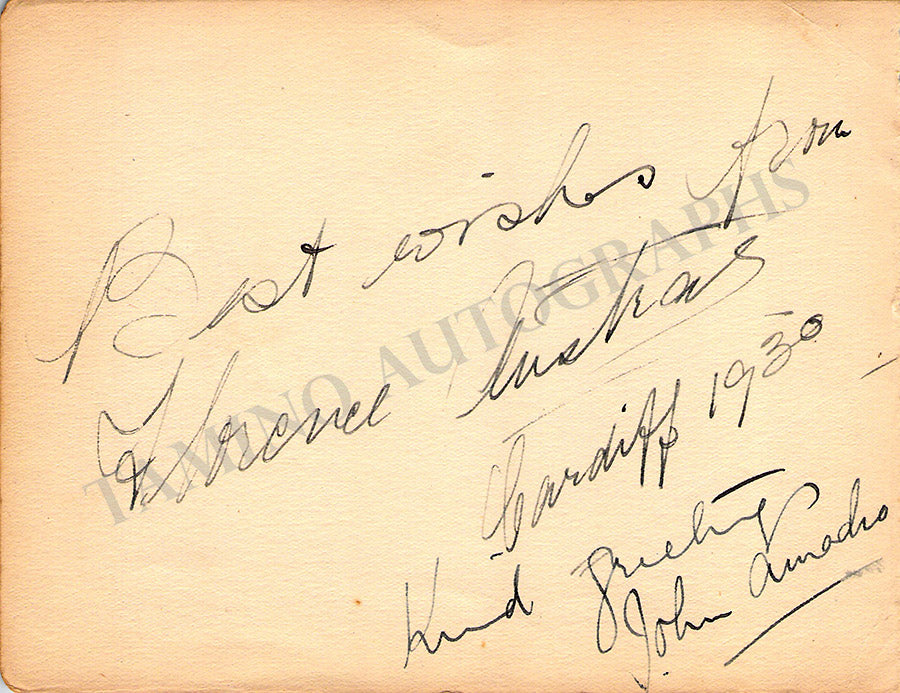 Best wishes from
Florence Austral
Cardiff 1930
Kind greetings
John Amadio
TAMINO AUTOGRAPHS